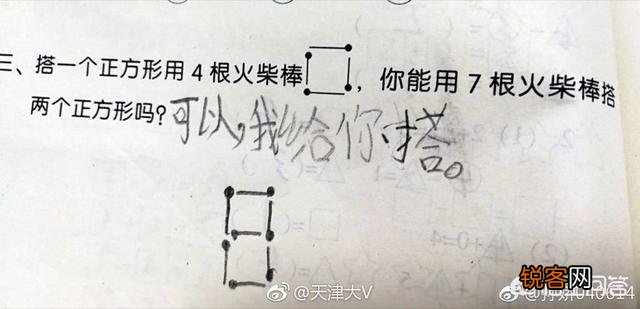 三、搭一个正方形用4根火柴棒 ，你能用7根火柴棒搭
两个正方形吗?可以,我给你搭。
@天津大V
锐客网